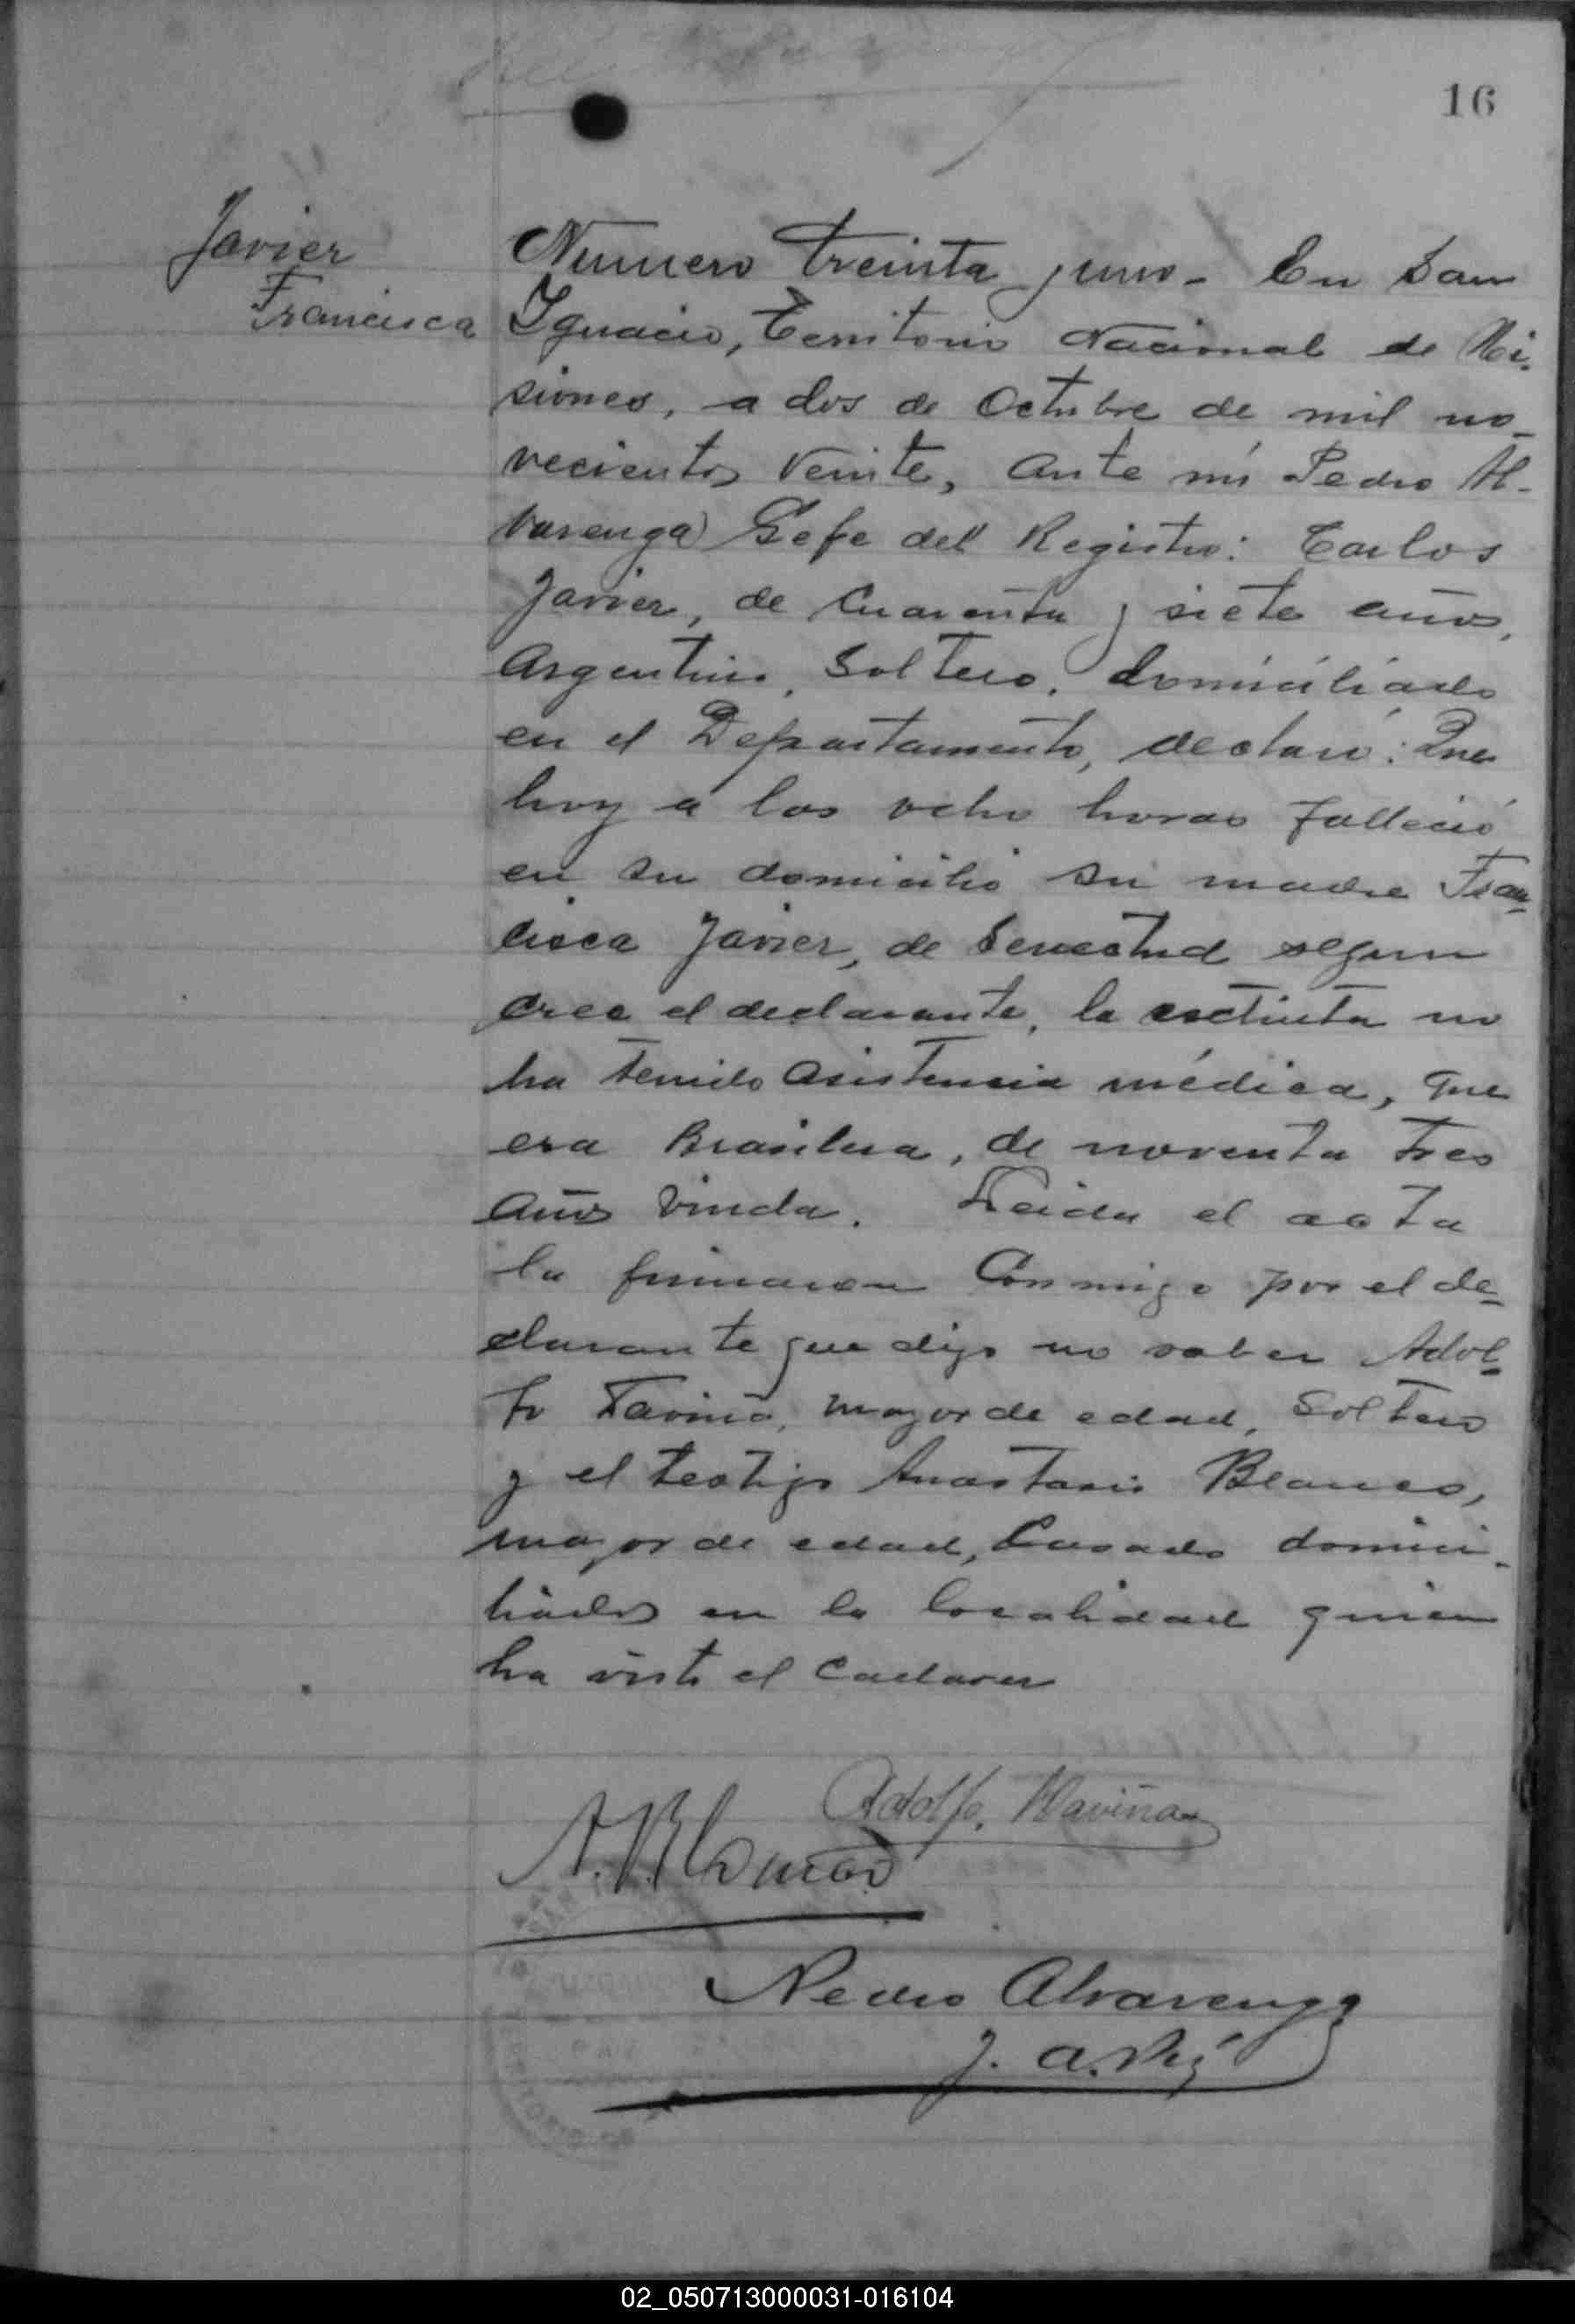 16
Javier
Francisca
Numero treinta y uno - En San
Ignacio, Territorio Nacional de Mi-
siones, a dos de Octubre de mil no-
vecientos veinte, ante mí Pedro Al-
varenga Gefe del Registro: Carlos
Javier, de Cuarenta y siete años,
Argentino, Soltero, domiciliado
en el Departamento, declaró: Que
hoy a las ocho horas falleció
en su domicilio su madre Fran-
cisca Javier, de Senectud segun
cree el declarante, la extinta no
ha tenido asistencia médica, que
era Brasilera, de noventa tres
años viuda. Leida el acta
la firmaron Conmigo por el de-
clarante que dijo no saber Adol-
fo Laviña, mayor de edad, Soltero
y el testigo Anastasio Blanco,
mayor de edad, Casado domici-
liados en la localidad quien
ha visto el Cadaver
Adolfo Laviña
A. Blanco
Pedro Alvarenga
02_050713000031-016104